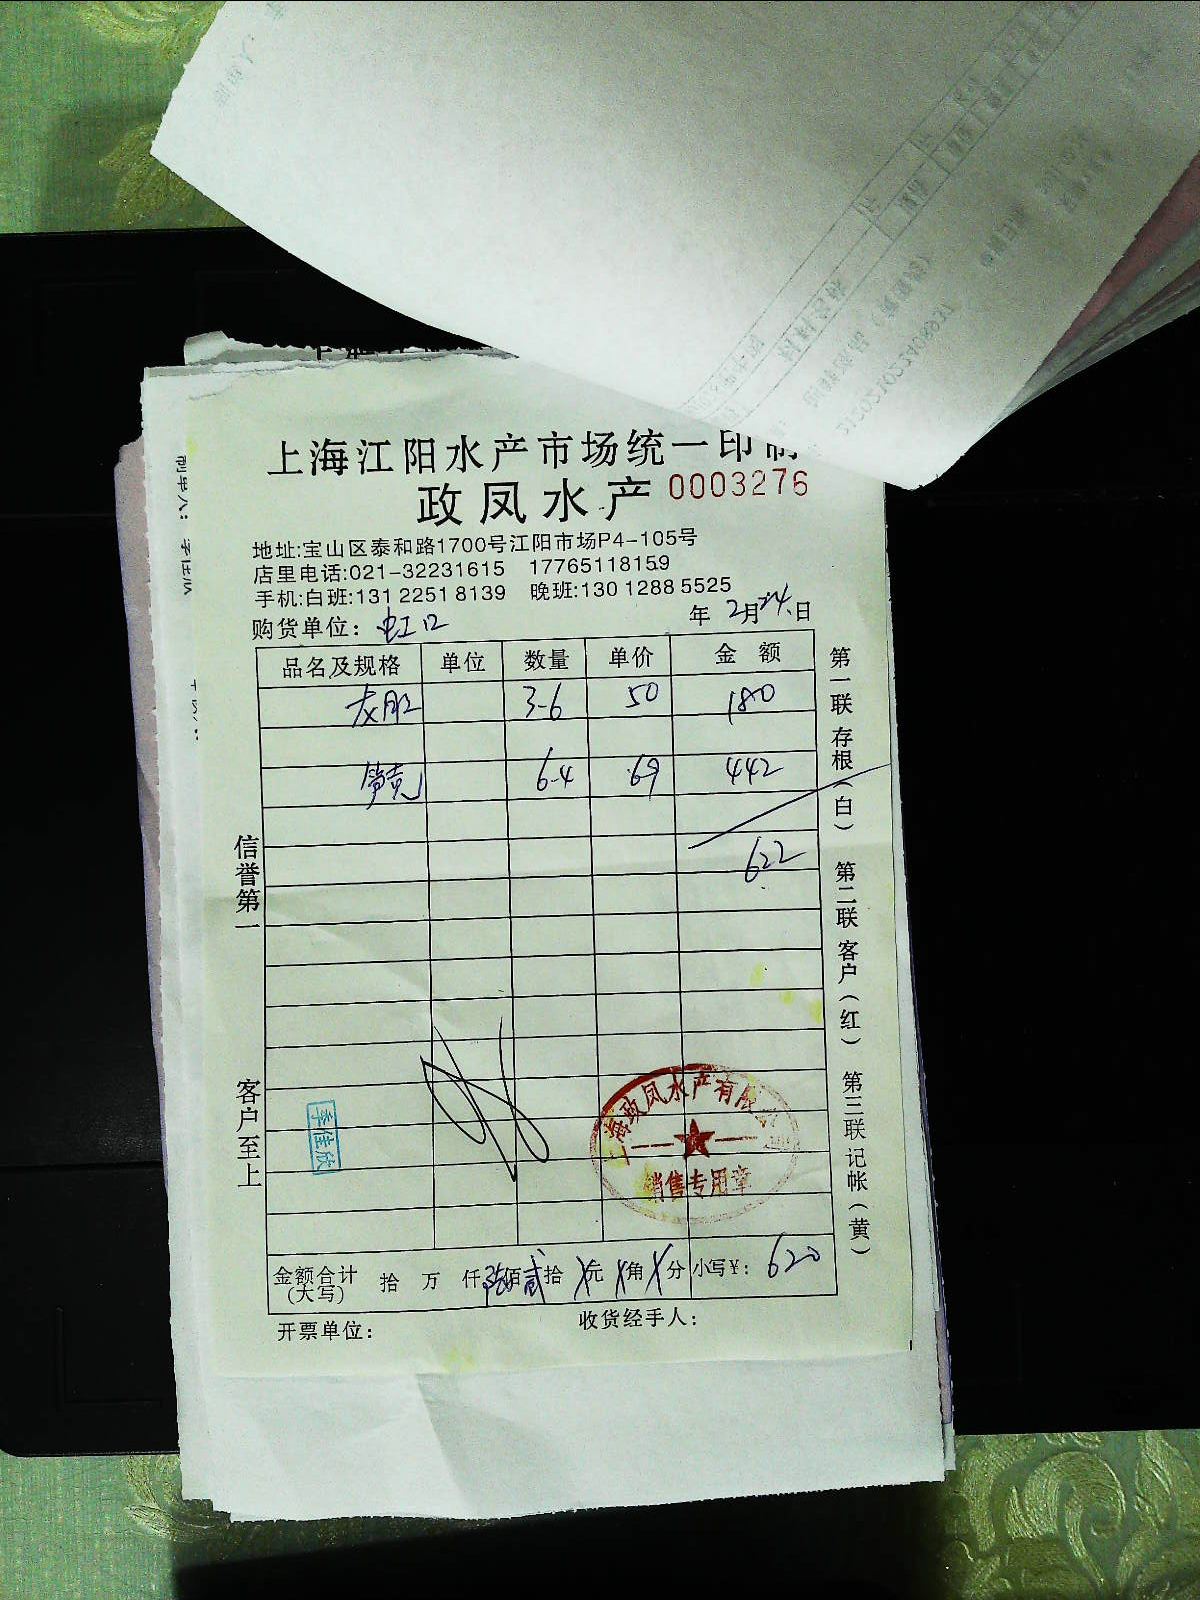 上海江阳水产市场统一印制
政凤水产 0003276
地址:宝山区泰和路1700号江阳市场P4-105号
店里电话:021-32231615 17765118159
手机:白班:131 2251 8139 晚班:130 1288 5525
购货单位: 虹口 年 2月24日
品名及规格 单位 数量 单价 金额
3-6 50 180
6-4 69 442
622
信誉第一
客户至上
第一联存根(白) 第二联客户(红) 第三联记帐(黄)
季佳欣
上海政凤水产有限公司
销售专用章
金额合计(大写) 拾 万 仟 陆佰 贰拾 X元 X角 X分 小写¥: 620
开票单位: 收货经手人:
制单人: 季佳欣